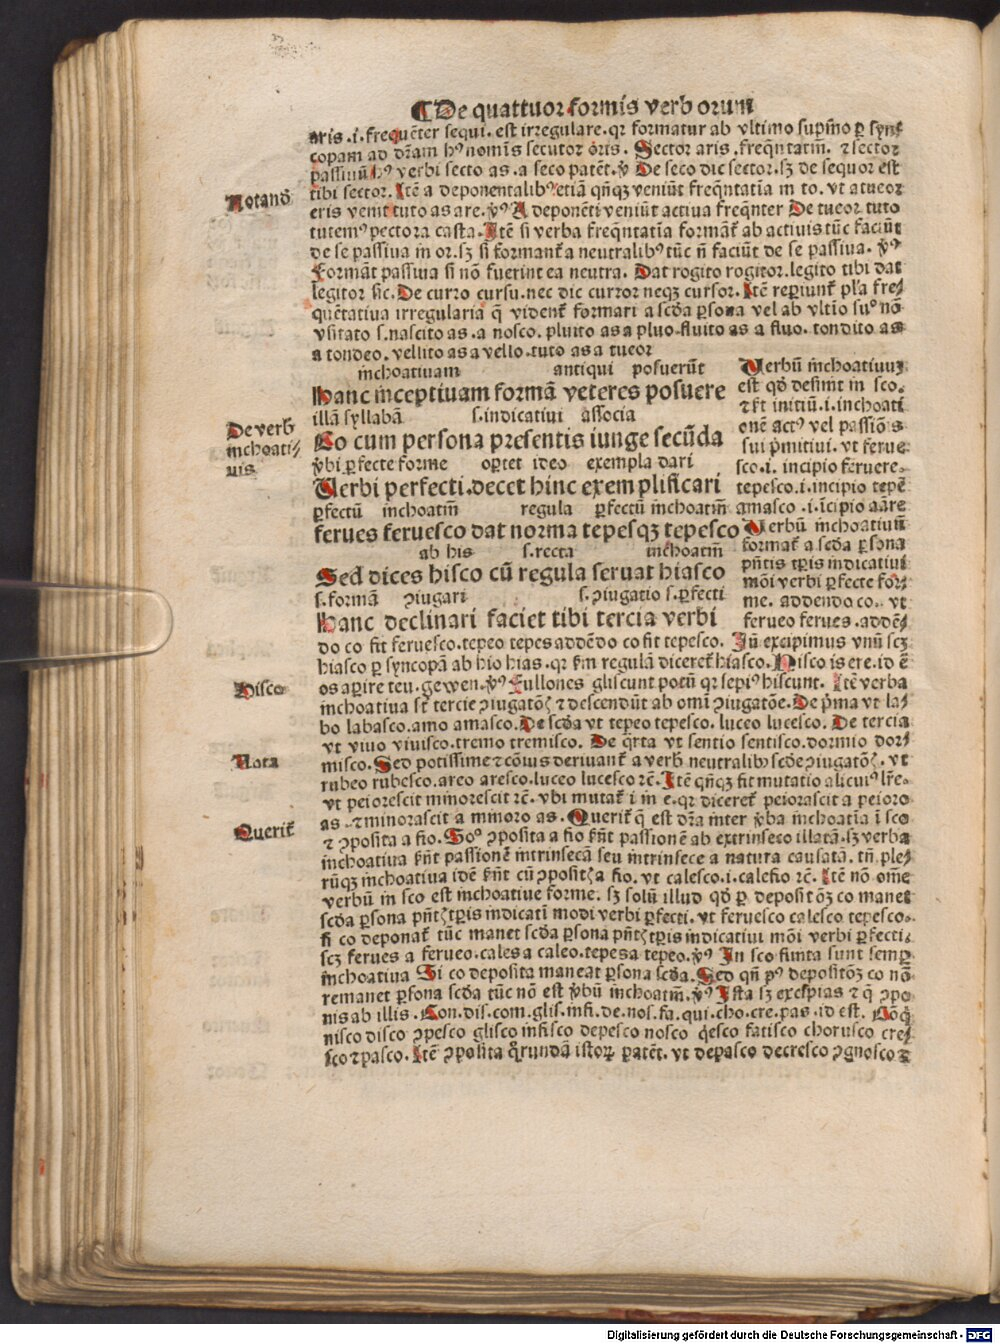 ¶De quattuor formis verborum
aris .i. frequēter sequi. est irregulare. qr formatur ab vltimo supīno ꝑ syn⸗
copam ad dr̄am hꝰ nomīs secutor oris. Sector aris .freqn̄tatiū. ⁊ sector
passiuū hꝰ verbi secto as .a seco patēt. ꝟ De seco dic sector. sꝫ de sequor est
tibi sector. Itē a deponentalibꝰ etiā qn̄qꝫ veniūt freqn̄tatīa in to. vt a tueor
eris venit tuto as are. ꝟꝰ A deponēti veniūt actiua freqn̄ter De tueor tuto
tutemꝰ pectora casta. Itē si verba freqn̄tatīa formāt᷑ ab actiuis tūc faciūt
de se passiua in or. sꝫ si formant᷑ a neutralibꝰ tūc n̄ faciūt de se passiua. ꝟꝰ
Formāt passiua si nō fuerint ea neutra. Dat rogito rogitor. legito tibi dat
legitor sic. De curro cursu. nec dic curror neqꝫ cursor. Itē reꝑiunt᷑ pl̄a fre⸗
quētatiua irregularia q̄ vident᷑ formari a scd̄a ꝑsona vel ab vltīo suꝰ nō
vsitato s. nascito as .a nosco. pluito as a pluo. fluito as a fluo. tondito as
a tondeo. vellito as a vello. tuto as a tueor
Notandō
inchoatiuam antiqui posuerūt
Hanc inceptiuam formā veteres posuere
illā syllabā s. indicatiui associa
Co cum persona presentis iunge secūda
ꝟbi ꝑfecte forme oꝑtet ideo exempla dari
Uerbi perfecti. decet hinc exemplificari
ꝑfectū inchoatiū regula ꝑfectū inchoatiū
ferues feruesco dat norma tepesqꝫ tepesco
ab his s. recta inchoatiū
Sed dices hisco cū regula seruat hiasco
s. formā ꝯiugari s. ꝯiugatio s. ꝑfecti
Hanc declinari faciet tibi tercia verbi
De verb
inchoati⸗
uis
Uerbū inchoatiuuꝫ
est qd̄ desinit in sco.
⁊ fit᷑ initiū .i. inchoati
onē actꝰ vel passiōis
sui pͥmitiui. vt ferue
sco .i. incipio feruere.
tepesco .i. incipio tepē
amasco .i. īcipio aāre
Uerbū inchoatiuū
format᷑ a scd̄a ꝑsona
pn̄tis tꝑis indicatiui
mōi verbi ꝑfecte for⸗
me. addendo co. vt
ferueo ferues. addē⸗
do co fit feruesco. tepeo tepes addēdo co fit tepesco. Iñ excipimus vnū scꝫ
hiasco ꝑ syncopā ab hio hias. qr ẜm regulā diceret᷑ hiasco. Hisco is ere. id ē
os aꝑire teu. gewen. ꝟꝰ Fullones gliscunt potū qr sepiꝰ hiscunt. Itē verba
inchoatiua st̄ tercie ꝯiugatōꝭ ⁊ descendūt ab omi ꝯiugatōe. De pͥma vt la⸗
bo labasco. amo amasco. De scd̄a vt tepeo tepesco. luceo lucesco. De tercia
vt viuo viuisco. tremo tremisco. De qͣrta vt sentio sentisco. dormio dor⸗
misco. Sed potissime ⁊ cōius deriuant᷑ a verb neutralibꝰ scd̄e ꝯiugatōꝭ. vt
rubeo rubesco. areo aresco. luceo lucesco ⁊c̄. Itē qn̄qꝫ fit mutatio alicuiꝰ lr̄e.
vt peiorescit minorescit ⁊c̄. vbi mutat᷑ i in e. qr diceret᷑ peiorascit a peioro
as .⁊ minorascit a minoro as. Querit᷑ q̄ est dr̄a inter ꝟba inchoatīa ī sco
⁊ ꝯposita a fio. Soꝰ ꝯposita a fio sn̄t passionē ab extrinseco illatā. sꝫ verba
inchoatiua sn̄t passionē intrinsecā seu intrinsece a natura causatā. tn̄ ple⸗
rūqꝫ inchoatiua idē sn̄t cū ꝯpositꝭ a fio. vt calesco .i. calefio ⁊c̄. Itē nō om̄e
verbū in sco est inchoatiue forme. sꝫ solū illud qd̄ ꝑ depositōꝫ co manet
scd̄a ꝑsona pn̄tꝭ tꝑis indicati modi verbi ꝑfecti. vt feruesco calesco tepesco.
si co deponat᷑ tūc manet scd̄a ꝑsona pn̄tꝭ tꝑis indicatiui mōi verbi ꝑfecti.
scꝫ ferues a ferueo. cales a caleo. tepes a tepeo. ꝟꝰ In sco finita sunt semꝑ
inchoatiua Si co deposita maneat ꝑsona scd̄a. Sed qn̄ pꝰ depositōꝫ co nō
remanet ꝑsona scd̄a tūc nō est ꝟbū inchoatiū. ꝟꝰ Ista sꝫ excipias ⁊ q̄ ꝯpo
nis ab illis. Con. dis. com. glis. infi. de. nos. fa. qui. cho. cre. pas. id est. Cōq̄
nisco disco ꝯpesco glisco infisco depesco nosco q̄esco fatisco chorusco cre⸗
sco ⁊ pasco. Itē ꝯposita qͦrundā istoꝝ patēt. vt depasco decresco ꝯgnosco ⁊
Hisco
Nota
Querit᷑
Digitalisierung gefördert durch die Deutsche Forschungsgemeinschaft - DFG